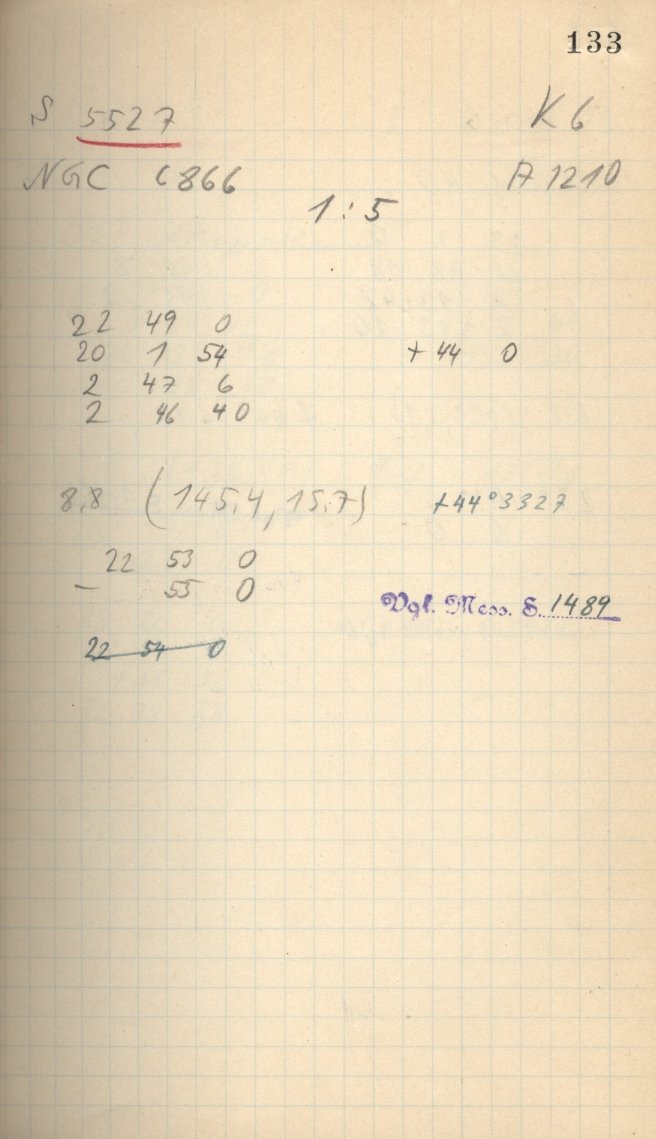 133
S 5527 K6
NGC 6866 A 1210
1:5
22 49 0
20 1 54 + 44 0
2 47 6
2 46 40
8,8 (145,4, 15,7) +44°3327
22 53 0
— 55 0
Vgl. Mess. S. 1489
22 54 0